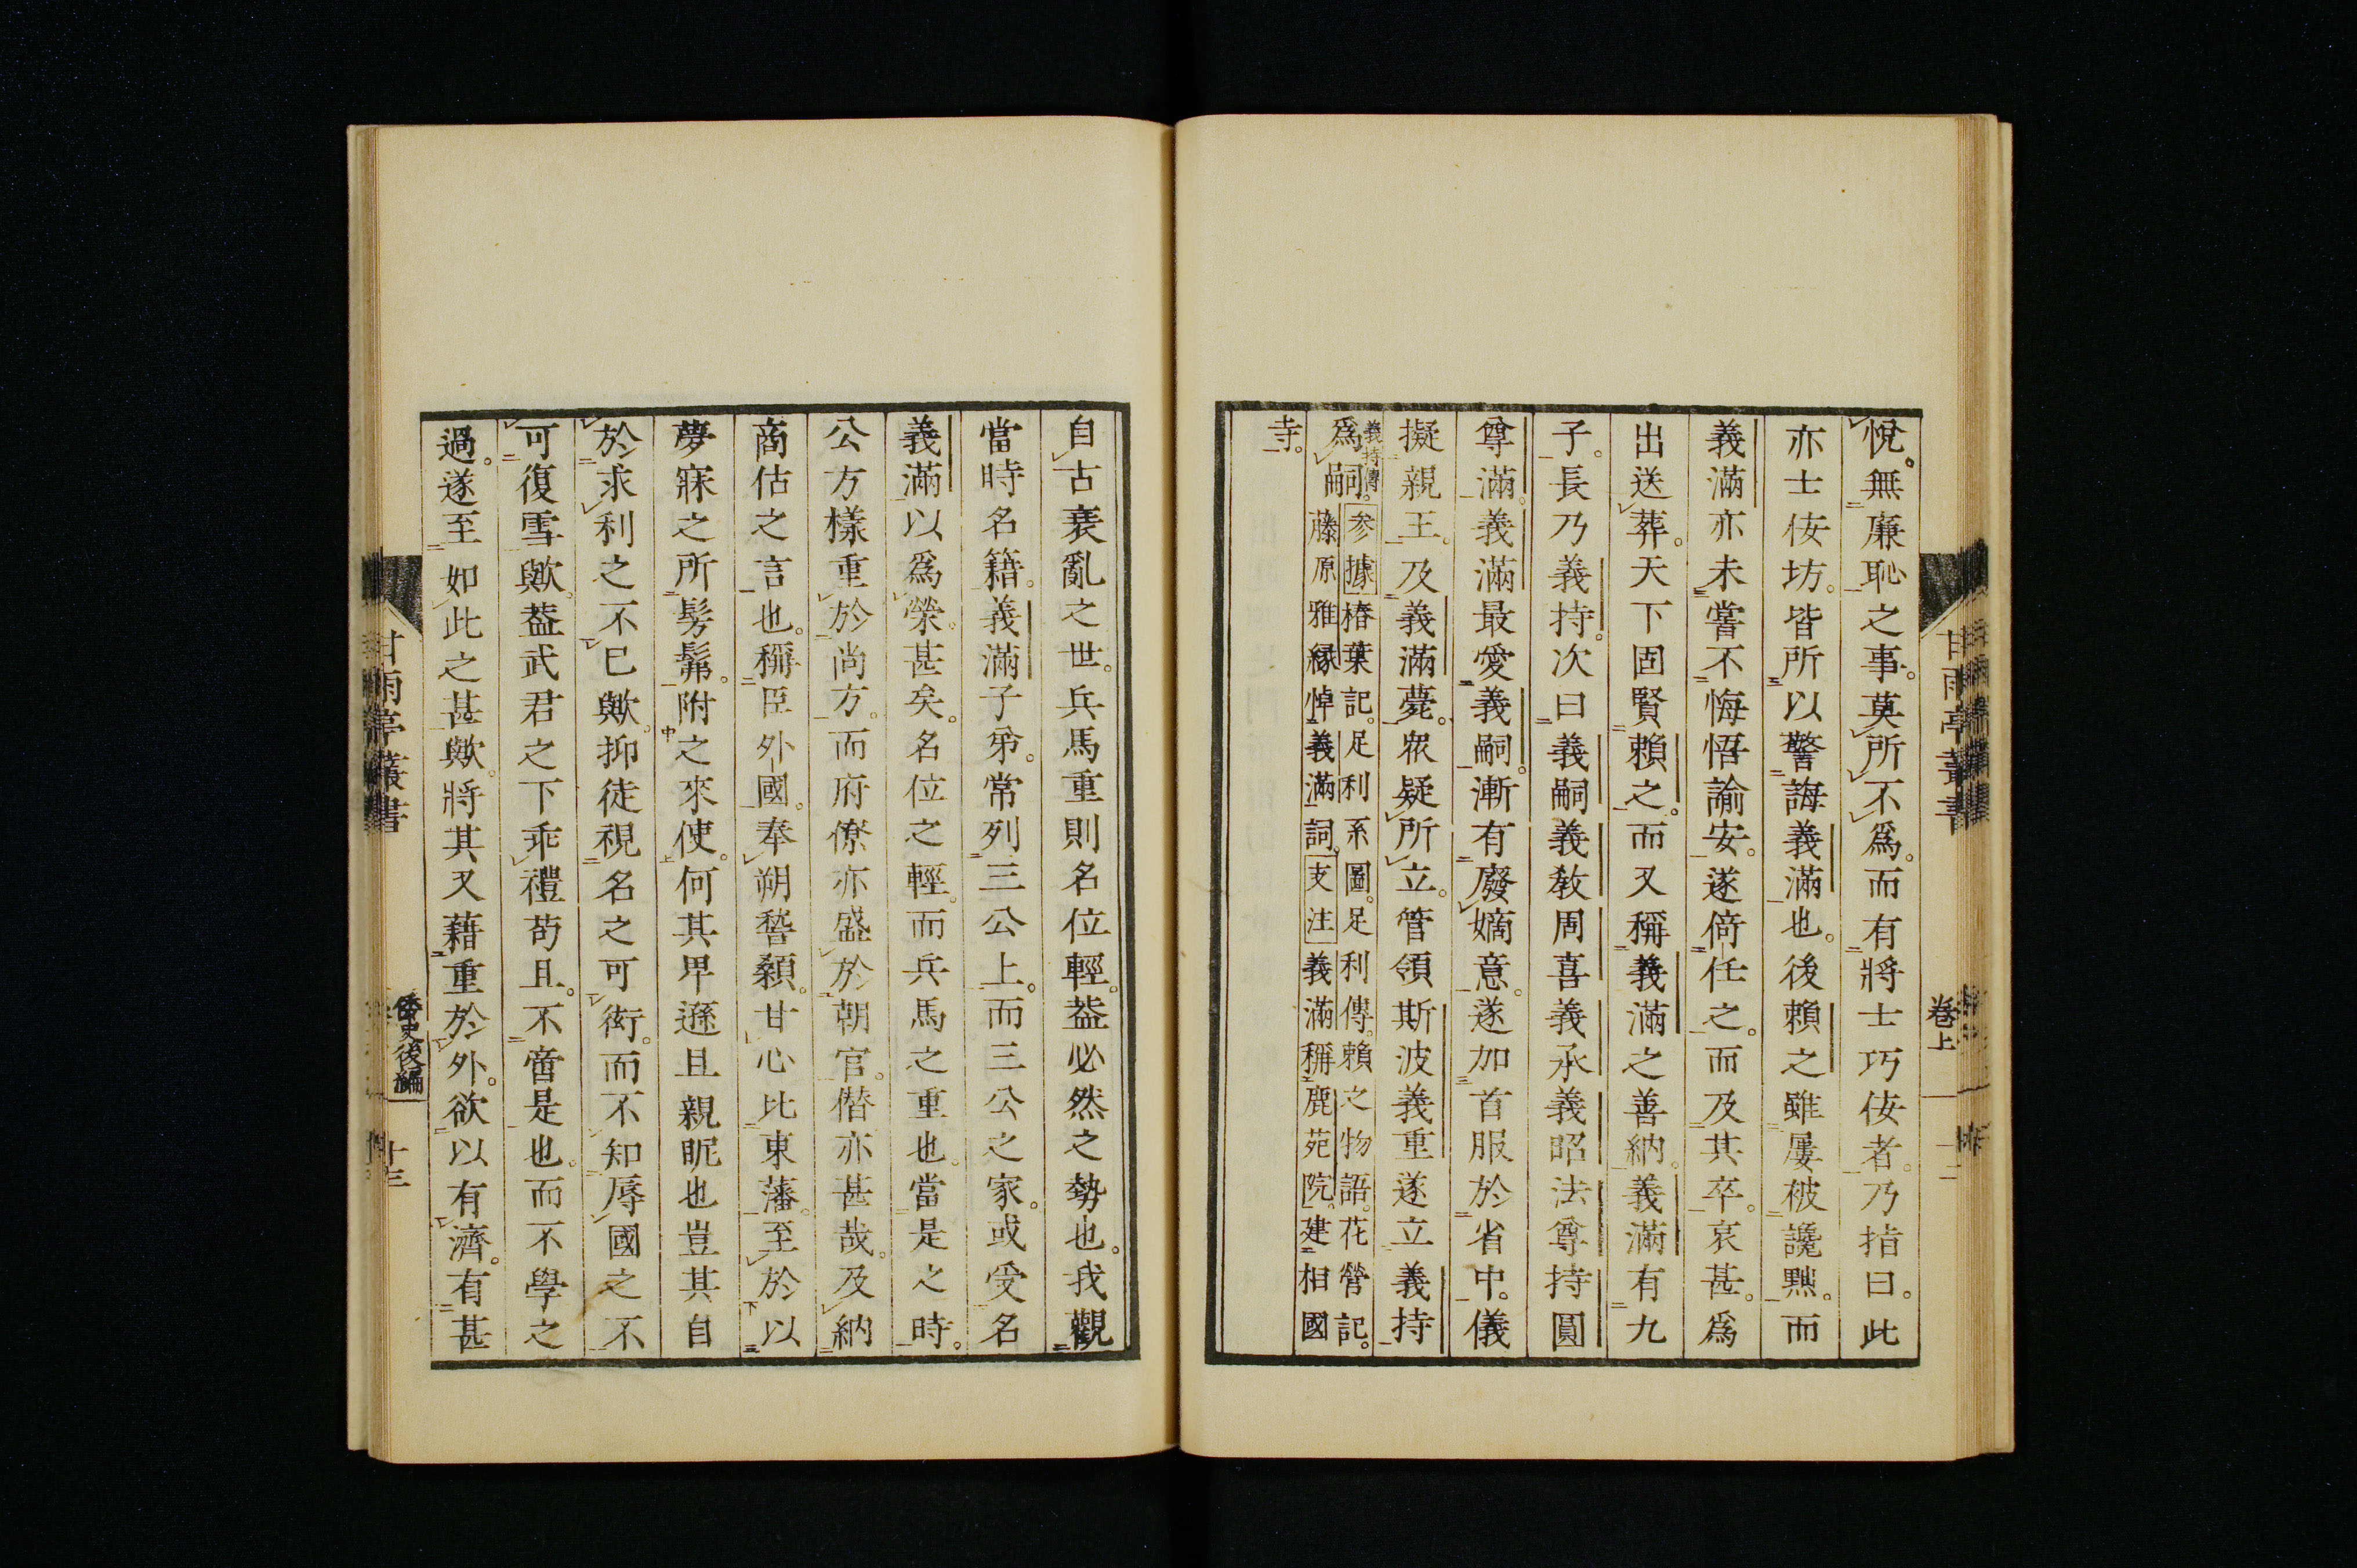 悅。無廉恥之事。莫所不爲。而有將士巧佞者。乃指曰。此
亦士佞坊。皆所以警誨義滿也。後賴之雖屢被讒黜。而
義滿亦未嘗不悔悟諭安。遂倚任之。而及其卒。哀甚。爲
出送葬。天下固賢賴之。而又稱義滿之善納。義滿有九
子。長乃義持。次曰義嗣義教周喜義承義昭法尊持圓
尊滿。義滿最愛義嗣。漸有廢嫡意。遂加首服於省中。儀
擬親王。及義滿薨。衆疑所立。管領斯波義重遂立義持
爲嗣。
義持傳
参據椿葉記。足利系圖。足利傳。賴之物語。花營記。
藤原雅緣悼義滿詞。支注義滿稱鹿苑院。建相國
寺。
卷上
甘雨亭叢書
自古衰亂之世。兵馬重則名位輕。蓋必然之勢也。我觀
當時名籍。義滿子弟。常列三公上。而三公之家。或受名
義滿以爲榮。甚矣。名位之輕。而兵馬之重也。當是之時。
公方樣重於尚方。而府僚亦盛於朝官。僭亦甚哉。及納
商估之言也。稱臣外國。奉朔誓顙。甘心比東藩。至於以
夢寐之所髣髴。附之來使。何其卑遜且親昵也豈其自
於求利之不已歟。抑徒視名之可衒。而不知辱國之不
可復雪歟。蓋武君之下乖禮苟且。不啻是也。而不學之
過。遂至如此之甚歟。將其又藉重於外。欲以有濟。有甚
甘雨亭叢書
倭史後編
十三